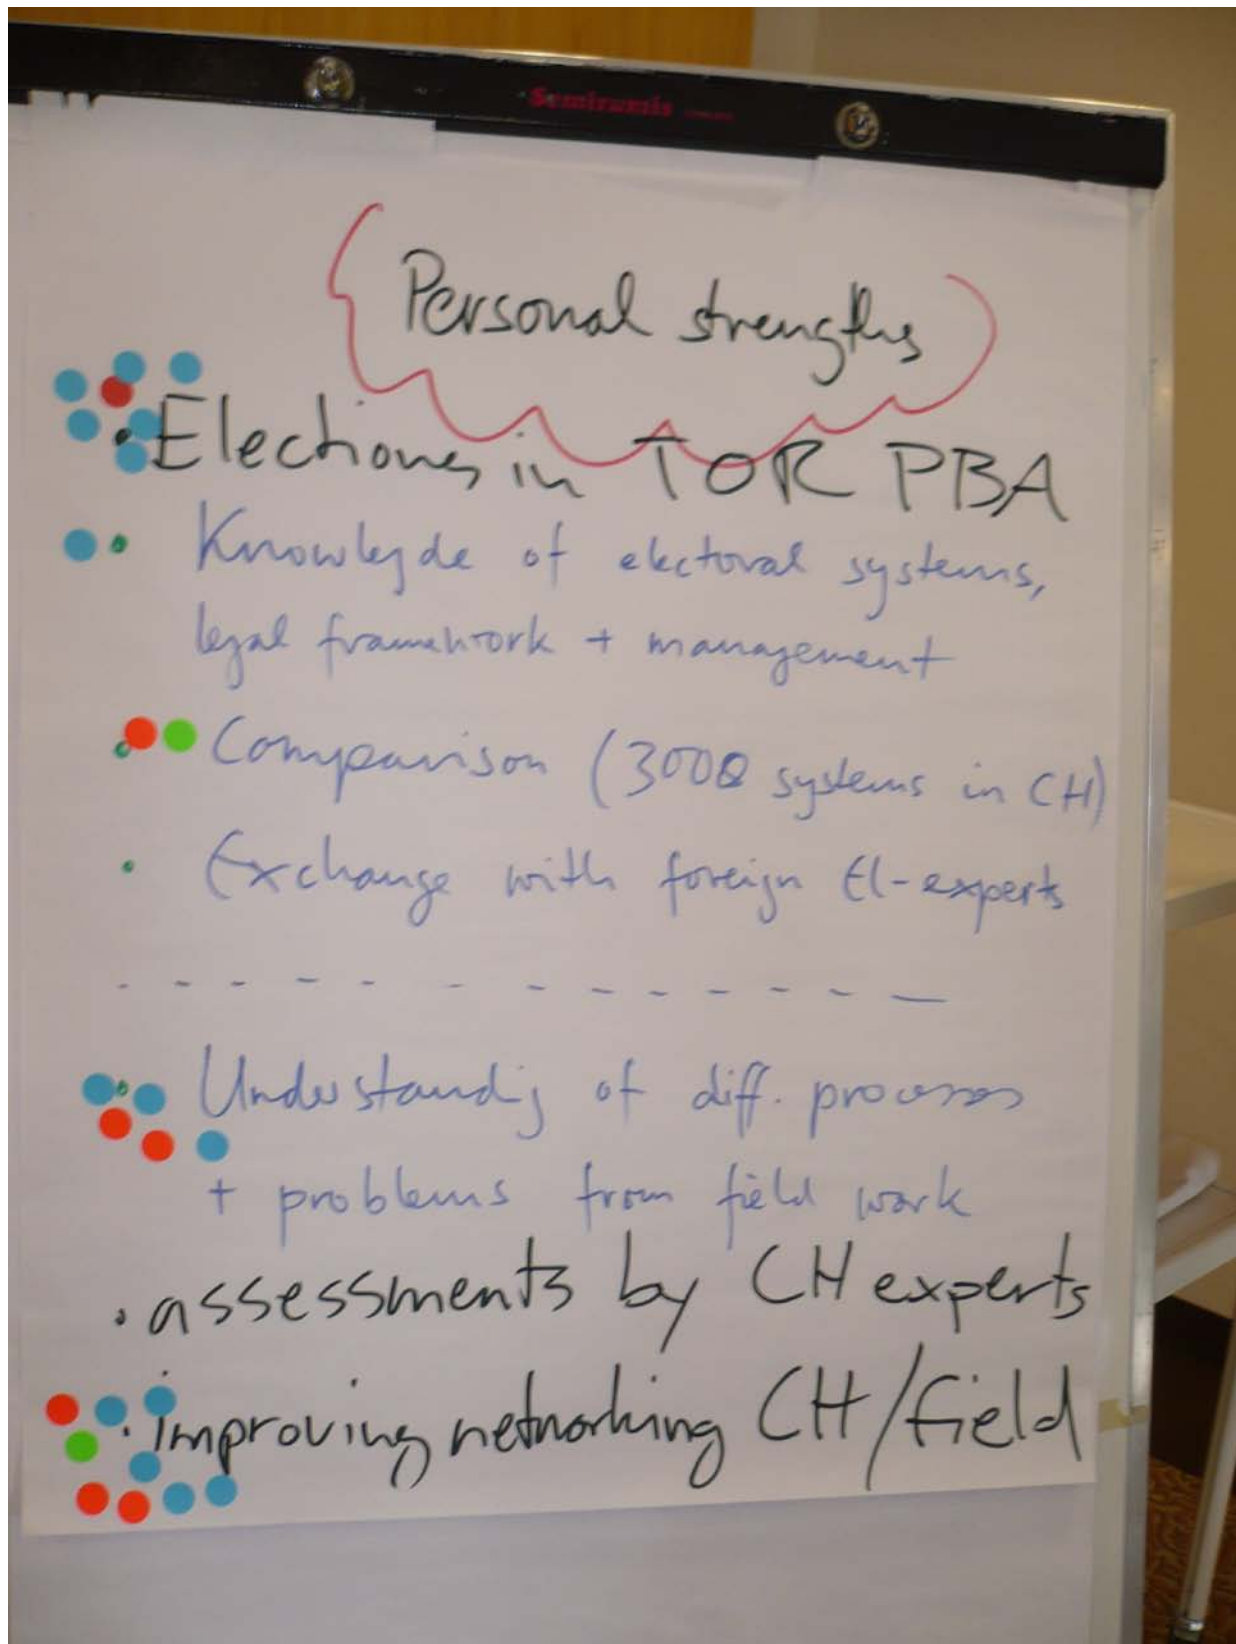 Semiramis
Personal strengths
• Elections in TOR PBA
• Knowlegde of electoral systems,
legal framework + management
• Comparison (3000 systems in CH)
• Exchange with foreign El-experts
- - - - - - - - - - - - -
• Understandig of diff. processes
+ problems from field work
• assessments by CH experts
• improving networking CH/field